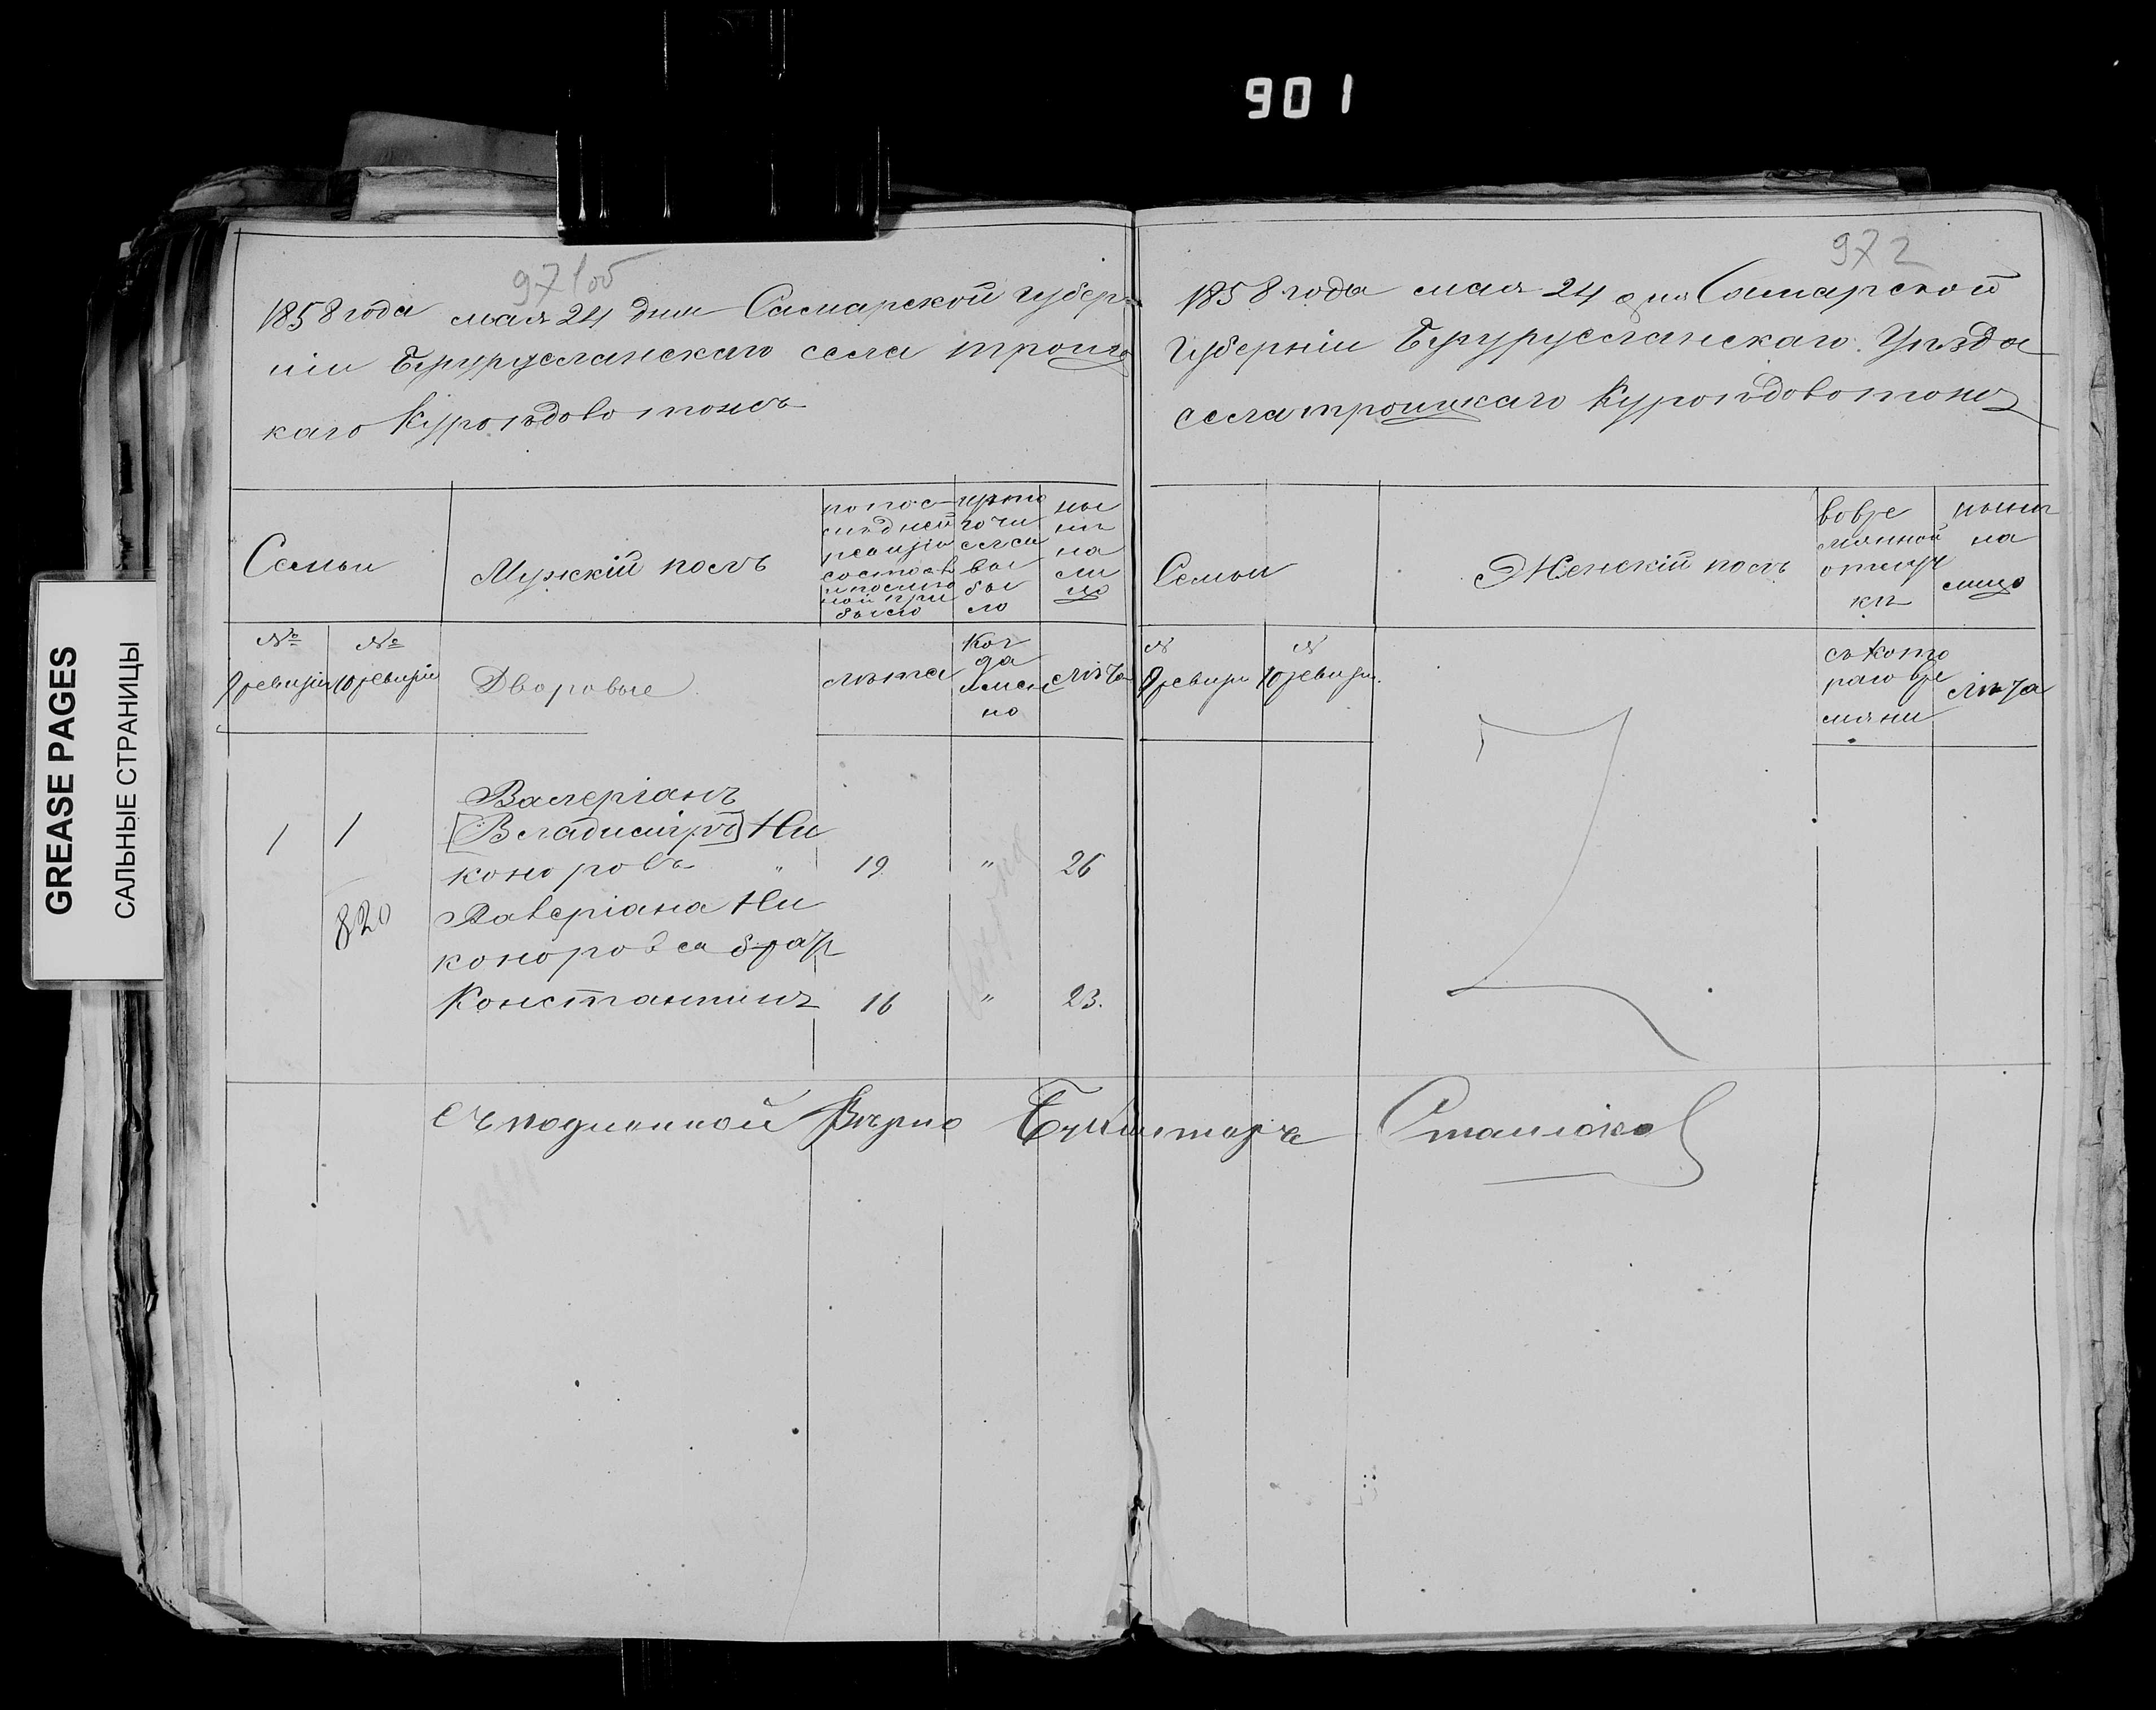 901
GREASE PAGES
САЛЬНЫЕ СТРАНИЦЫ
971об
1858 года мая 24 дня Самарской губер-
нiи Бугурусланскаго села троиц
каго Куроѣдово тожъ
Семьи
Мужскiй полъ
по пос-
лѣдней
ревизiи
состояло
и послѣ
той при
было
изъ то
го чи
сла
вы
бы
ло
ны
нѣ
на
ли
цо
№
9 ревизiи
№
10 ревизiи
Дворовые
лѣта
Ког
да
имен
но
лѣта
1
1
Валерiанъ
[Владимiръ] Ни
коноровъ
19
"
26
820
Валерiана Ни
коноровса брат
Константинъ
16
"
23.
Съ подлинной Вѣрно Бухгалтеръ
972
1858 года мая 24 дня Самарской
Губернiи Бугурусланскаго Уѣзда
села троицкаго Куроѣдово тожъ
Семьи
Женскiй полъ
во вре
мянной
отлуч
кѣ
нынѣ
на
лицо
№
9 ревизи
№
10 ревизи.
съ кото
раго вре
мяни
лѣта